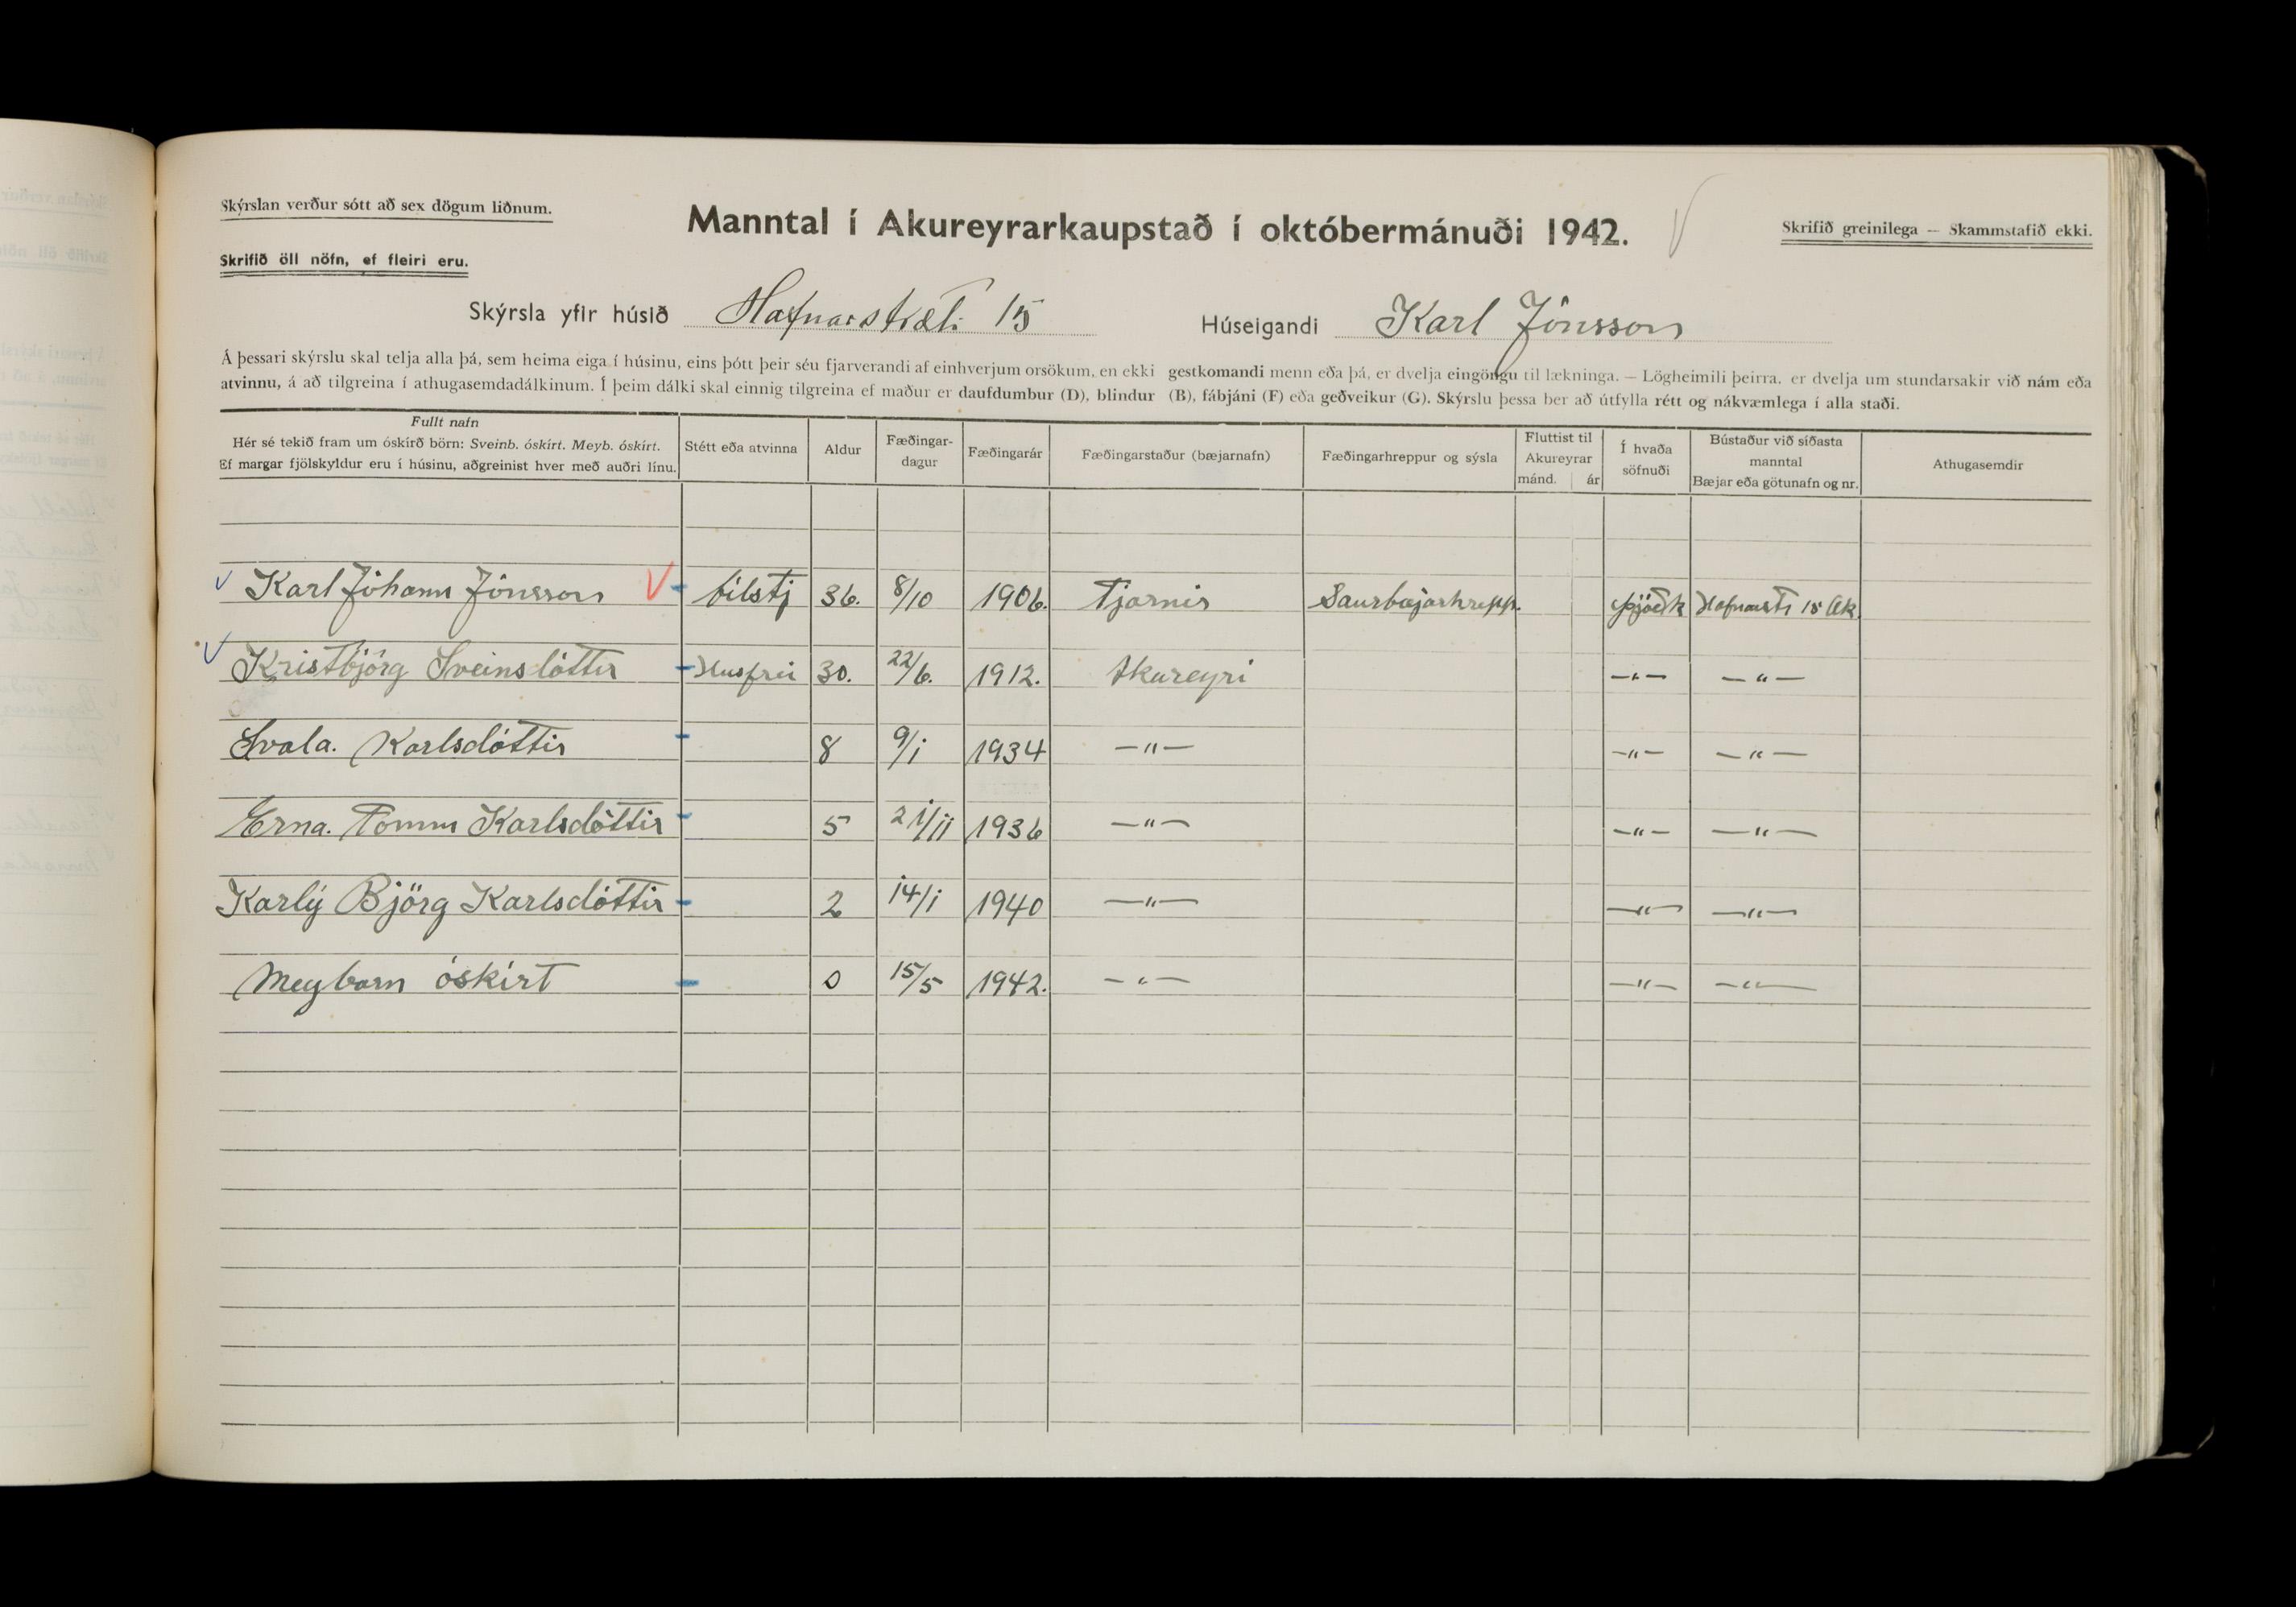 Skýrslan verður sótt að sex dögum liðnum.
Manntal í Akureyrarkaupstað í októbermánuði 1942.
Skrifið greinilega — Skammstafið ekki.
Skrifið öll nöfn, ef fleiri eru.
Skýrsla yfir húsið Hafnarstræti 15 Húseigandi Karl Jónsson
Á þessari skýrslu skal telja alla þá, sem heima eiga í húsinu, eins þótt þeir séu fjarverandi af einhverjum orsökum, en ekki gestkomandi menn eða þá, er dvelja eingöngu til lækninga. — Lögheimili þeirra, er dvelja um stundarsakir við nám eða
atvinnu, á að tilgreina í athugasemdadálkinum. Í þeim dálki skal einnig tilgreina ef maður er daufdumbur (D), blindur (B), fábjáni (F) eða geðveikur (G). Skýrslu þessa ber að útfylla rétt og nákvæmlega í alla staði.
Fullt nafn
Hér sé tekið fram um óskírð börn: Sveinb. óskírt. Meyb. óskírt.
Ef margar fjölskyldur eru í húsinu, aðgreinist hver með auðri línu.
Stétt eða atvinna
Aldur
Fæðingar-
dagur
Fæðingarár
Fæðingarstaður (bæjarnafn)
Fæðingarhreppur og sýsla
Fluttist til
Akureyrar
mánd. ár
Í hvaða
söfnuði
Bústaður við síðasta
manntal
Bæjar eða götunafn og nr.
Athugasemdir
Karl Jóhann Jónsson bílstj 36. 8/10 1906. Tjarnir Saurbæjarhrepp. Þjóðk Hafnarstr 15 Ak
Kristbjörg Sveinsdóttir Húsfrú 30. 22/6. 1912. Akureyri —"— —"—
Svala. Karlsdóttir 8 9/1 1934 —"— —"— —"—
Erna. Karlsdóttir 5 21/11 1936 —"— —"— —"—
Karlý Björg Karlsdóttir 2 14/1 1940 —"— —"— —"—
Meybarn óskírt 0 15/5 1942. —"— —"— —"—